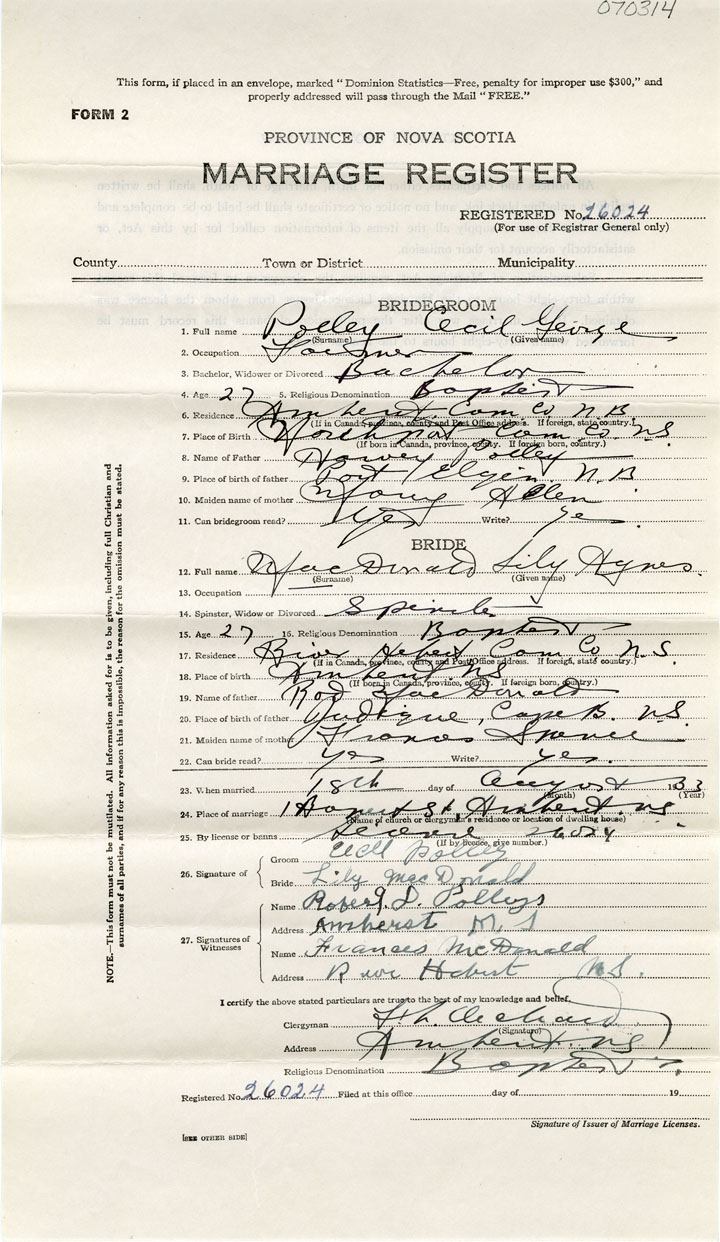 070314
This form, if placed in an envelope, marked "Dominion Statistics—Free, penalty for improper use $300," and
properly addressed will pass through the Mail "FREE."
FORM 2
PROVINCE OF NOVA SCOTIA
MARRIAGE REGISTER
REGISTERED No. 26024
(For use of Registrar General only)
County Town or District Municipality
BRIDEGROOM
1. Full name Polley Cecil George
(Surname) (Given name)
2. Occupation Farmer
3. Bachelor, Widower or Divorced Bachelor
4. Age 27 5. Religious Denomination Baptist
6. Residence Amherst Cum Co N.B.
(If in Canada, province, county and Post Office address. If foreign, state country.)
7. Place of Birth Northport Cum. Co. N.S
(If born in Canada, province, county. If foreign born, country.)
8. Name of Father Harvey Polley
9. Place of birth of father Port Elgin N.B
10. Maiden name of mother Mary Allen
11. Can bridegroom read? Yes Write? Ye
BRIDE
12. Full name MacDonald Lily Agnes
(Surname) (Given name)
13. Occupation
14. Spinster, Widow or Divorced
15. Age 27 16. Religious Denomination Baptist
17. Residence River Hebert Cum Co N.S.
(If in Canada, province, county and Post Office address. If foreign, state country.)
18. Place of birth Amherst NS
(If born in Canada, province, county. If foreign born, country.)
19. Name of father Rod MacDonald
20. Place of birth of father Cape B. N.S.
21. Maiden name of mother Frances Spence
22. Can bride read? Yes Write? Yes.
23. When married 18th day of August 1933
(Month) (Year)
24. Place of marriage St Amherst. NS.
(Name of church or clergyman's residence or location of dwelling house)
25. By license or banns License 26024
(If by licence, give number.)
26. Signature of Groom Cecil Polley
Bride Lily MacDonald
27. Signatures of Witnesses Name Robert D. Polleys
Address Amherst N.S
Name Frances McDonald
Address River Hebert N.S.
I certify the above stated particulars are true to the best of my knowledge and belief.
Clergyman
(Signature)
Address Amherst. NS
Religious Denomination Baptist
Registered No. 26024 Filed at this office day of 19
Signature of Issuer of Marriage Licenses.
[SEE OTHER SIDE]
NOTE.—This form must not be mutilated. All information asked for is to be given, including full Christian and
surnames of all parties, and if for any reason this is impossible, the reason for the omission must be stated.